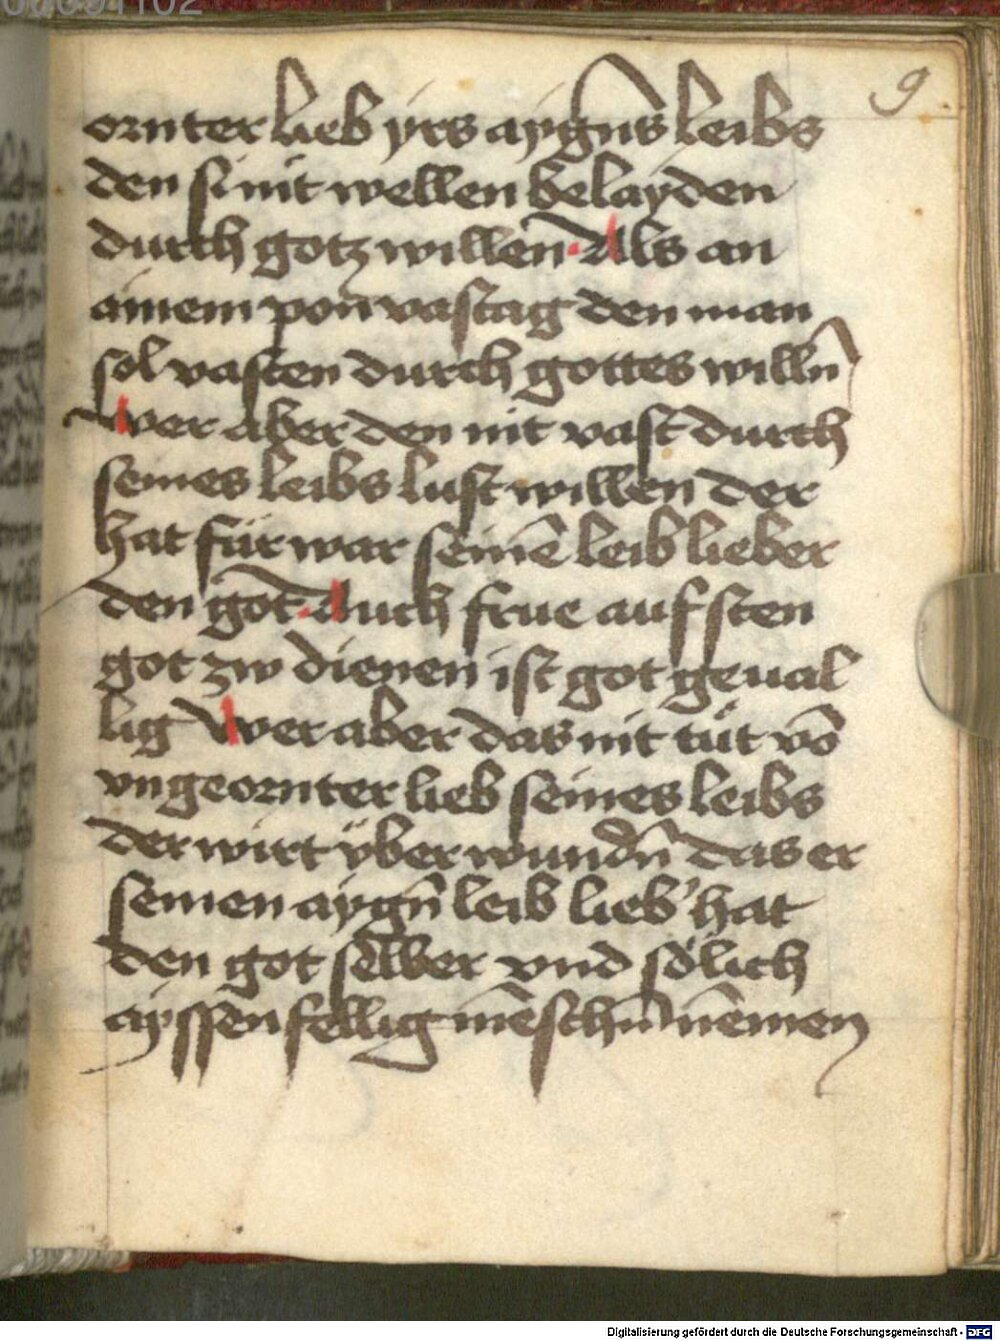 9
ornter lieb yrs aygns̄ leibs
den si nit wellen belayden
durch gotz willen. Als an
ainem pon̄ vastag den man
sol vasten durch gottes willn̄
Wer aber den nit vast durch
seines leibs lust willen der
hat für war seinē leib lieber
den got. Auch frue auf sten
got zw dienen ist got geual
lig Wer aber das nit tüt vō
vngeornter lieb seines leibs
der wirt yber wundn̄ das er
seinen aygn̄ leib lieb' hat
den got selber vnd sölich
ayssen fellig mēschn̄ nemen
Digitalisierung gefördert durch die Deutsche Forschungsgemeinschaft - DFG